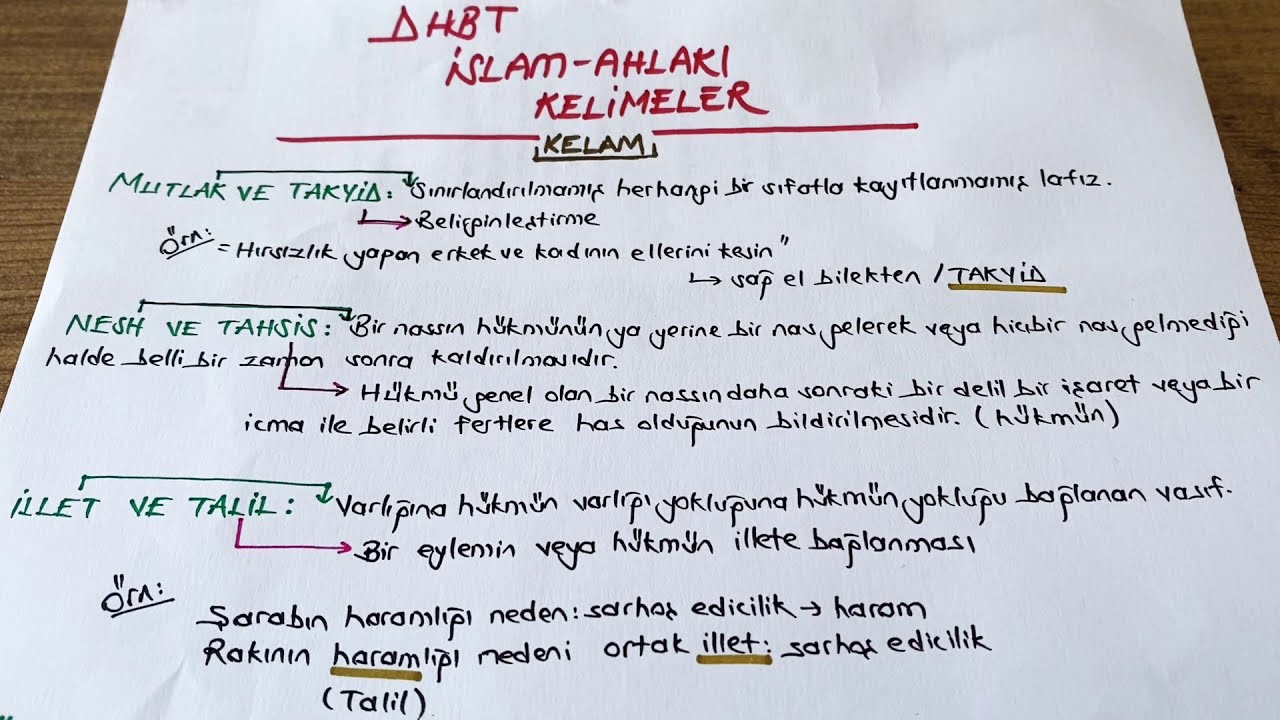 DHBT
İSLAM-AHLAKI
KELİMELER
KELAM
MUTLAK VE TAKYİD: Sınırlandırılmamış herhangi bir sıfatla kayıtlanmamış lafız.
Belirginleştirme
Örn: = Hırsızlık yapan erkek ve kadının ellerini kesin"
sağ el bilekten / TAKYİD
NESH VE TAHSİS: Bir nassın hükmünün ya yerine bir nas gelerek veya hiçbir nas gelmediği
halde belli bir zaman sonra kaldırılmasıdır.
Hükmü genel olan bir nassın daha sonraki bir delil bir işaret veya bir
icma ile belirli fertlere has olduğunun bildirilmesidir. (hükmün)
İLLET VE TALİL: Varlığına hükmün varlığı yokluğuna hükmün yokluğu bağlanan vasıf.
Bir eylemin veya hükmün illete bağlanması
Örn:
Şarabın haramlığı neden: sarhoş edicilik → haram
Rakının haramlığı nedeni ortak illet: sarhoş edicilik
(Talil)